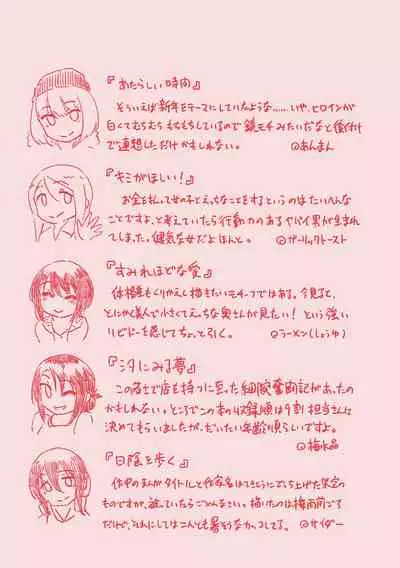 『あたらしい時間』
そういえば新年をテーマにしていたような……いや、ヒロインが
白くてむちむちもちもちしているので鏡モチみたいだなと後付け
で連想しただけかもしれない。 @あんまん
『キミがほしい！』
お金を払って女の子とえっちなことをするというのはたいへんな
ことですよ、と考えていたら行動力のあるヤバイ男が生まれ
てしまった。健気な女だよほんと。 @ガーリックトースト
『すみれほどな愛』
くりかえし描きたいモチーフではある。今見ると、
とにかく美人で小さくてえっちな奥さんが見たい！という強い
リビドーを感じてちょっと引く。 @ラーメン(しょうゆ)
『シタにみる夢』
この若さで店を持つに至った細腕奮闘記があったの
かもしれない。ところでこの本の収録順は9割担当さんに
決めてもらいましたが、だいたい年齢順らしいですよ。
@梅水晶
『日陰を歩く』
作中のまんがタイトルと作家名はてきとうにでっち上げた架空の
ものですが、被っていたらごめんなさい。描いたのは梅雨前ごろ
だけど、それにしてはこいつも暑そうなカッコしてる。 @サイダー